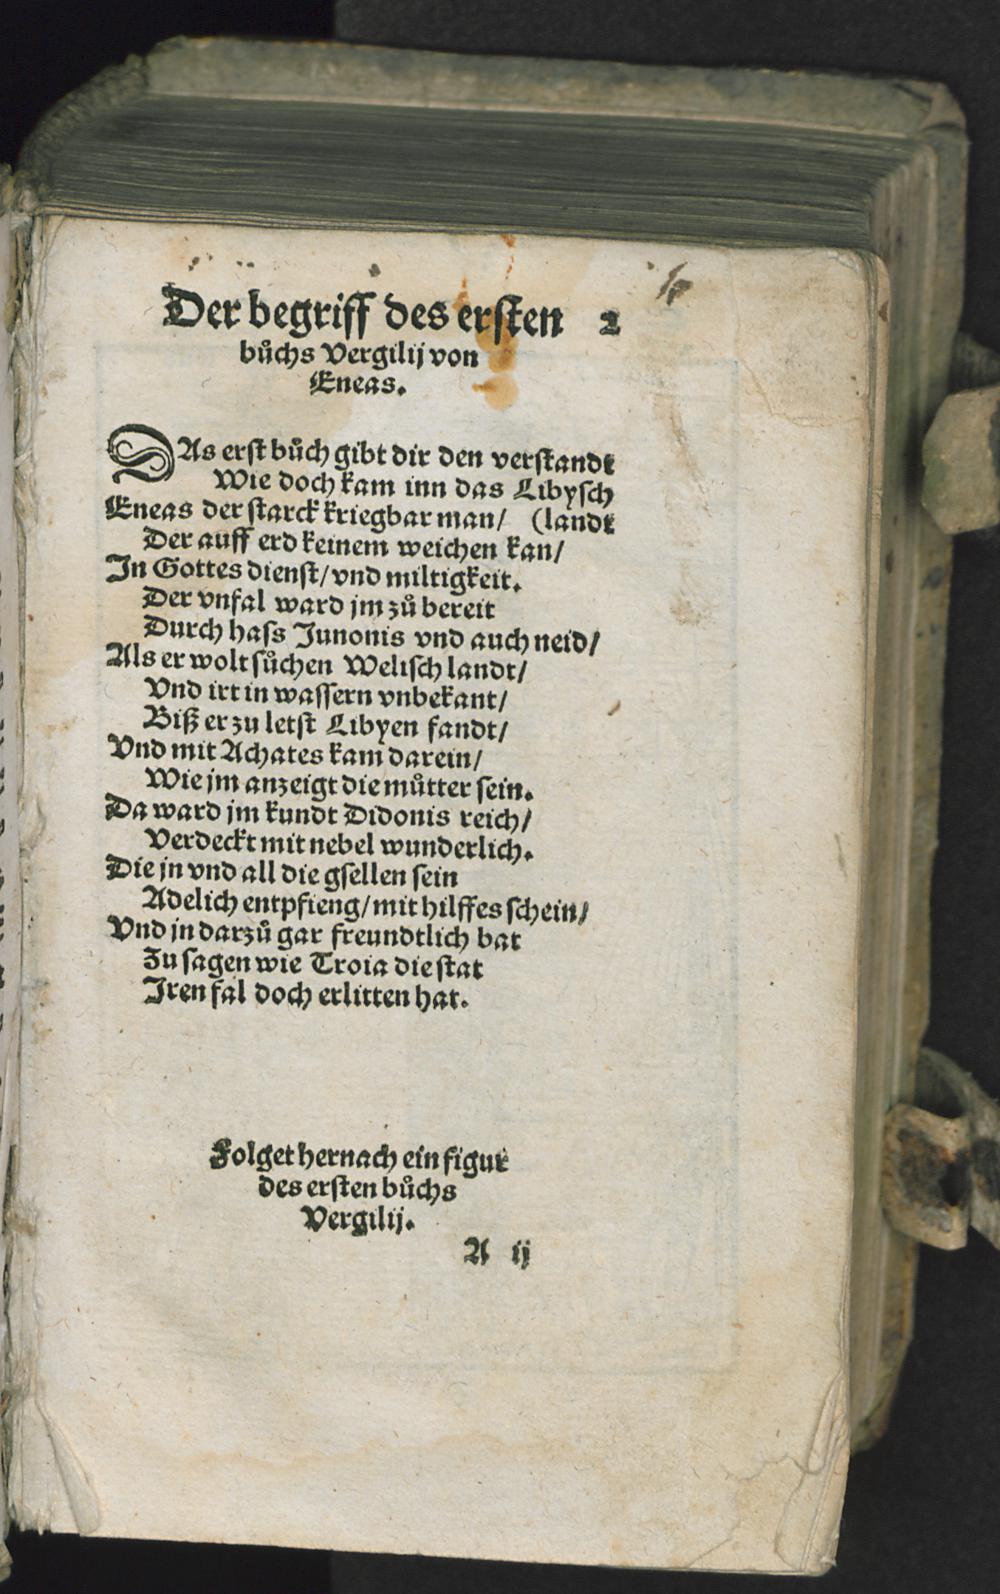 Der begriff des ersten 2
bůchs Vergilij von
Eneas.
DAs erst bůch gibt dir den verstandt
Wie doch kam inn das Libysch
Eneas der starck kriegbar man/ (landt
Der auff erd keinem weichen kan/
In Gottes dienst/vnd miltigkeit.
Der vnfal ward jm zů bereit
Durch hass Junonis vnd auch neid/
Als er wolt sůchen Welisch landt/
Vnd irt in wassern vnbekant/
Biß er zu letst Libyen fandt/
Vnd mit Achates kam darein/
Wie jm anzeigt die můtter sein.
Da ward jm kundt Didonis reich/
Verdeckt mit nebel wunderlich.
Die jn vnd all die gsellen sein
Adelich entpfieng/mit hilffes schein/
Vnd jn darzů gar freundtlich bat
Zu sagen wie Troia die stat
Iren fal doch erlitten hat.
Folget hernach ein figur
des ersten bůchs
Vergilij.
A ij